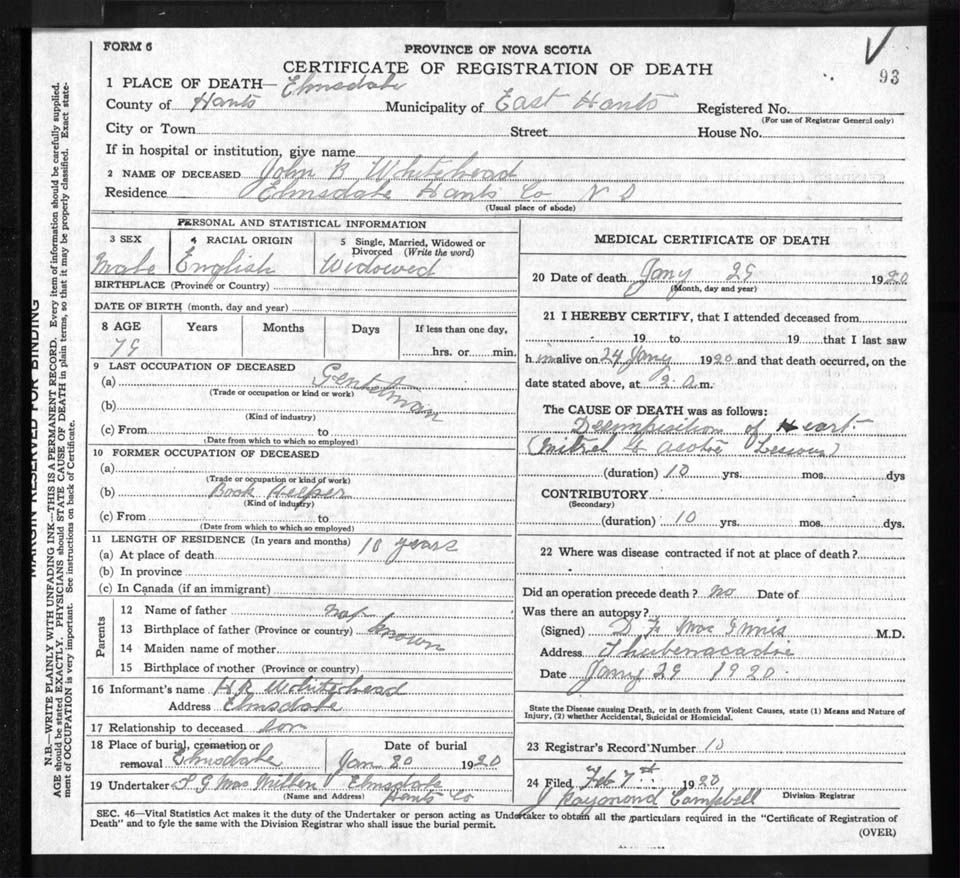 FORM 6
PROVINCE OF NOVA SCOTIA
CERTIFICATE OF REGISTRATION OF DEATH
93
1 PLACE OF DEATH— Elmsdale
County of Hants Municipality of East Hants Registered No.
(For use of Registrar General only)
City or Town Street House No.
If in hospital or institution, give name
2 NAME OF DECEASED John B Whitehead
Residence Elmsdale Hants Co N S
(Usual place of abode)
PERSONAL AND STATISTICAL INFORMATION
3 SEX 4 RACIAL ORIGIN 5 Single, Married, Widowed or Divorced (Write the word)
Male English Widowed
BIRTHPLACE (Province or Country)
DATE OF BIRTH (month, day and year)
8 AGE Years Months Days If less than one day,
79 hrs. or min.
9 LAST OCCUPATION OF DECEASED
(a) Gentelman
(Trade or occupation or kind or work)
(b)
(Kind of industry)
(c) From to
(Date from which to which so employed)
10 FORMER OCCUPATION OF DECEASED
(a)
(Trade or occupation or kind of work)
(b) Book Keeper
(Kind of industry)
(c) From to
(Date from which to which so employed)
11 LENGTH OF RESIDENCE (In years and months) 10 years
(a) At place of death
(b) In province
(c) In Canada (if an immigrant)
Parents
12 Name of father not
13 Birthplace of father (Province or country) known
14 Maiden name of mother
15 Birthplace of mother (Province or country)
16 Informant's name H R Whitehead
Address Elmsdale
17 Relationship to deceased Son
18 Place of burial, cremation or removal Elmsdale
Date of burial Jan 30 1920
19 Undertaker G MacMillen Elmsdale
(Name and Address) Hants Co
MEDICAL CERTIFICATE OF DEATH
20 Date of death Jany 29 1920
(Month, day and year)
21 I HEREBY CERTIFY, that I attended deceased from
19 to 19 that I last saw
h im alive on 24 Jany 1920 and that death occurred, on the
date stated above, at 2 a.m.
The CAUSE OF DEATH was as follows:
of Heart
(duration) 10 yrs. mos. dys
CONTRIBUTORY
(Secondary)
(duration) 10 yrs. mos. dys.
22 Where was disease contracted if not at place of death?
Did an operation precede death? No Date of
Was there an autopsy?
(Signed) D F Mac Innis M.D.
Address Shubenacadie
Date Jany 29 1920
State the Disease causing Death, or in death from Violent Causes, state (1) Means and Nature of
Injury, (2) whether Accidental, Suicidal or Homicidal.
23 Registrar's Record Number 10
24 Filed Feb 7th 1920
J Raymond Campbell Division Registrar
SEC. 46—Vital Statistics Act makes it the duty of the Undertaker or person acting as Undertaker to obtain all the particulars required in the "Certificate of Registration of
Death" and to fyle the same with the Division Registrar who shall issue the burial permit.
(OVER)
MARGIN RESERVED FOR BINDING
N.B.—WRITE PLAINLY WITH UNFADING INK—THIS IS A PERMANENT RECORD. Every item of information should be carefully supplied.
AGE should be stated EXACTLY. PHYSICIANS should STATE CAUSE OF DEATH in plain terms, so that it may be properly classified. Exact state-
ment of OCCUPATION is very important. See instructions on back of Certificate.